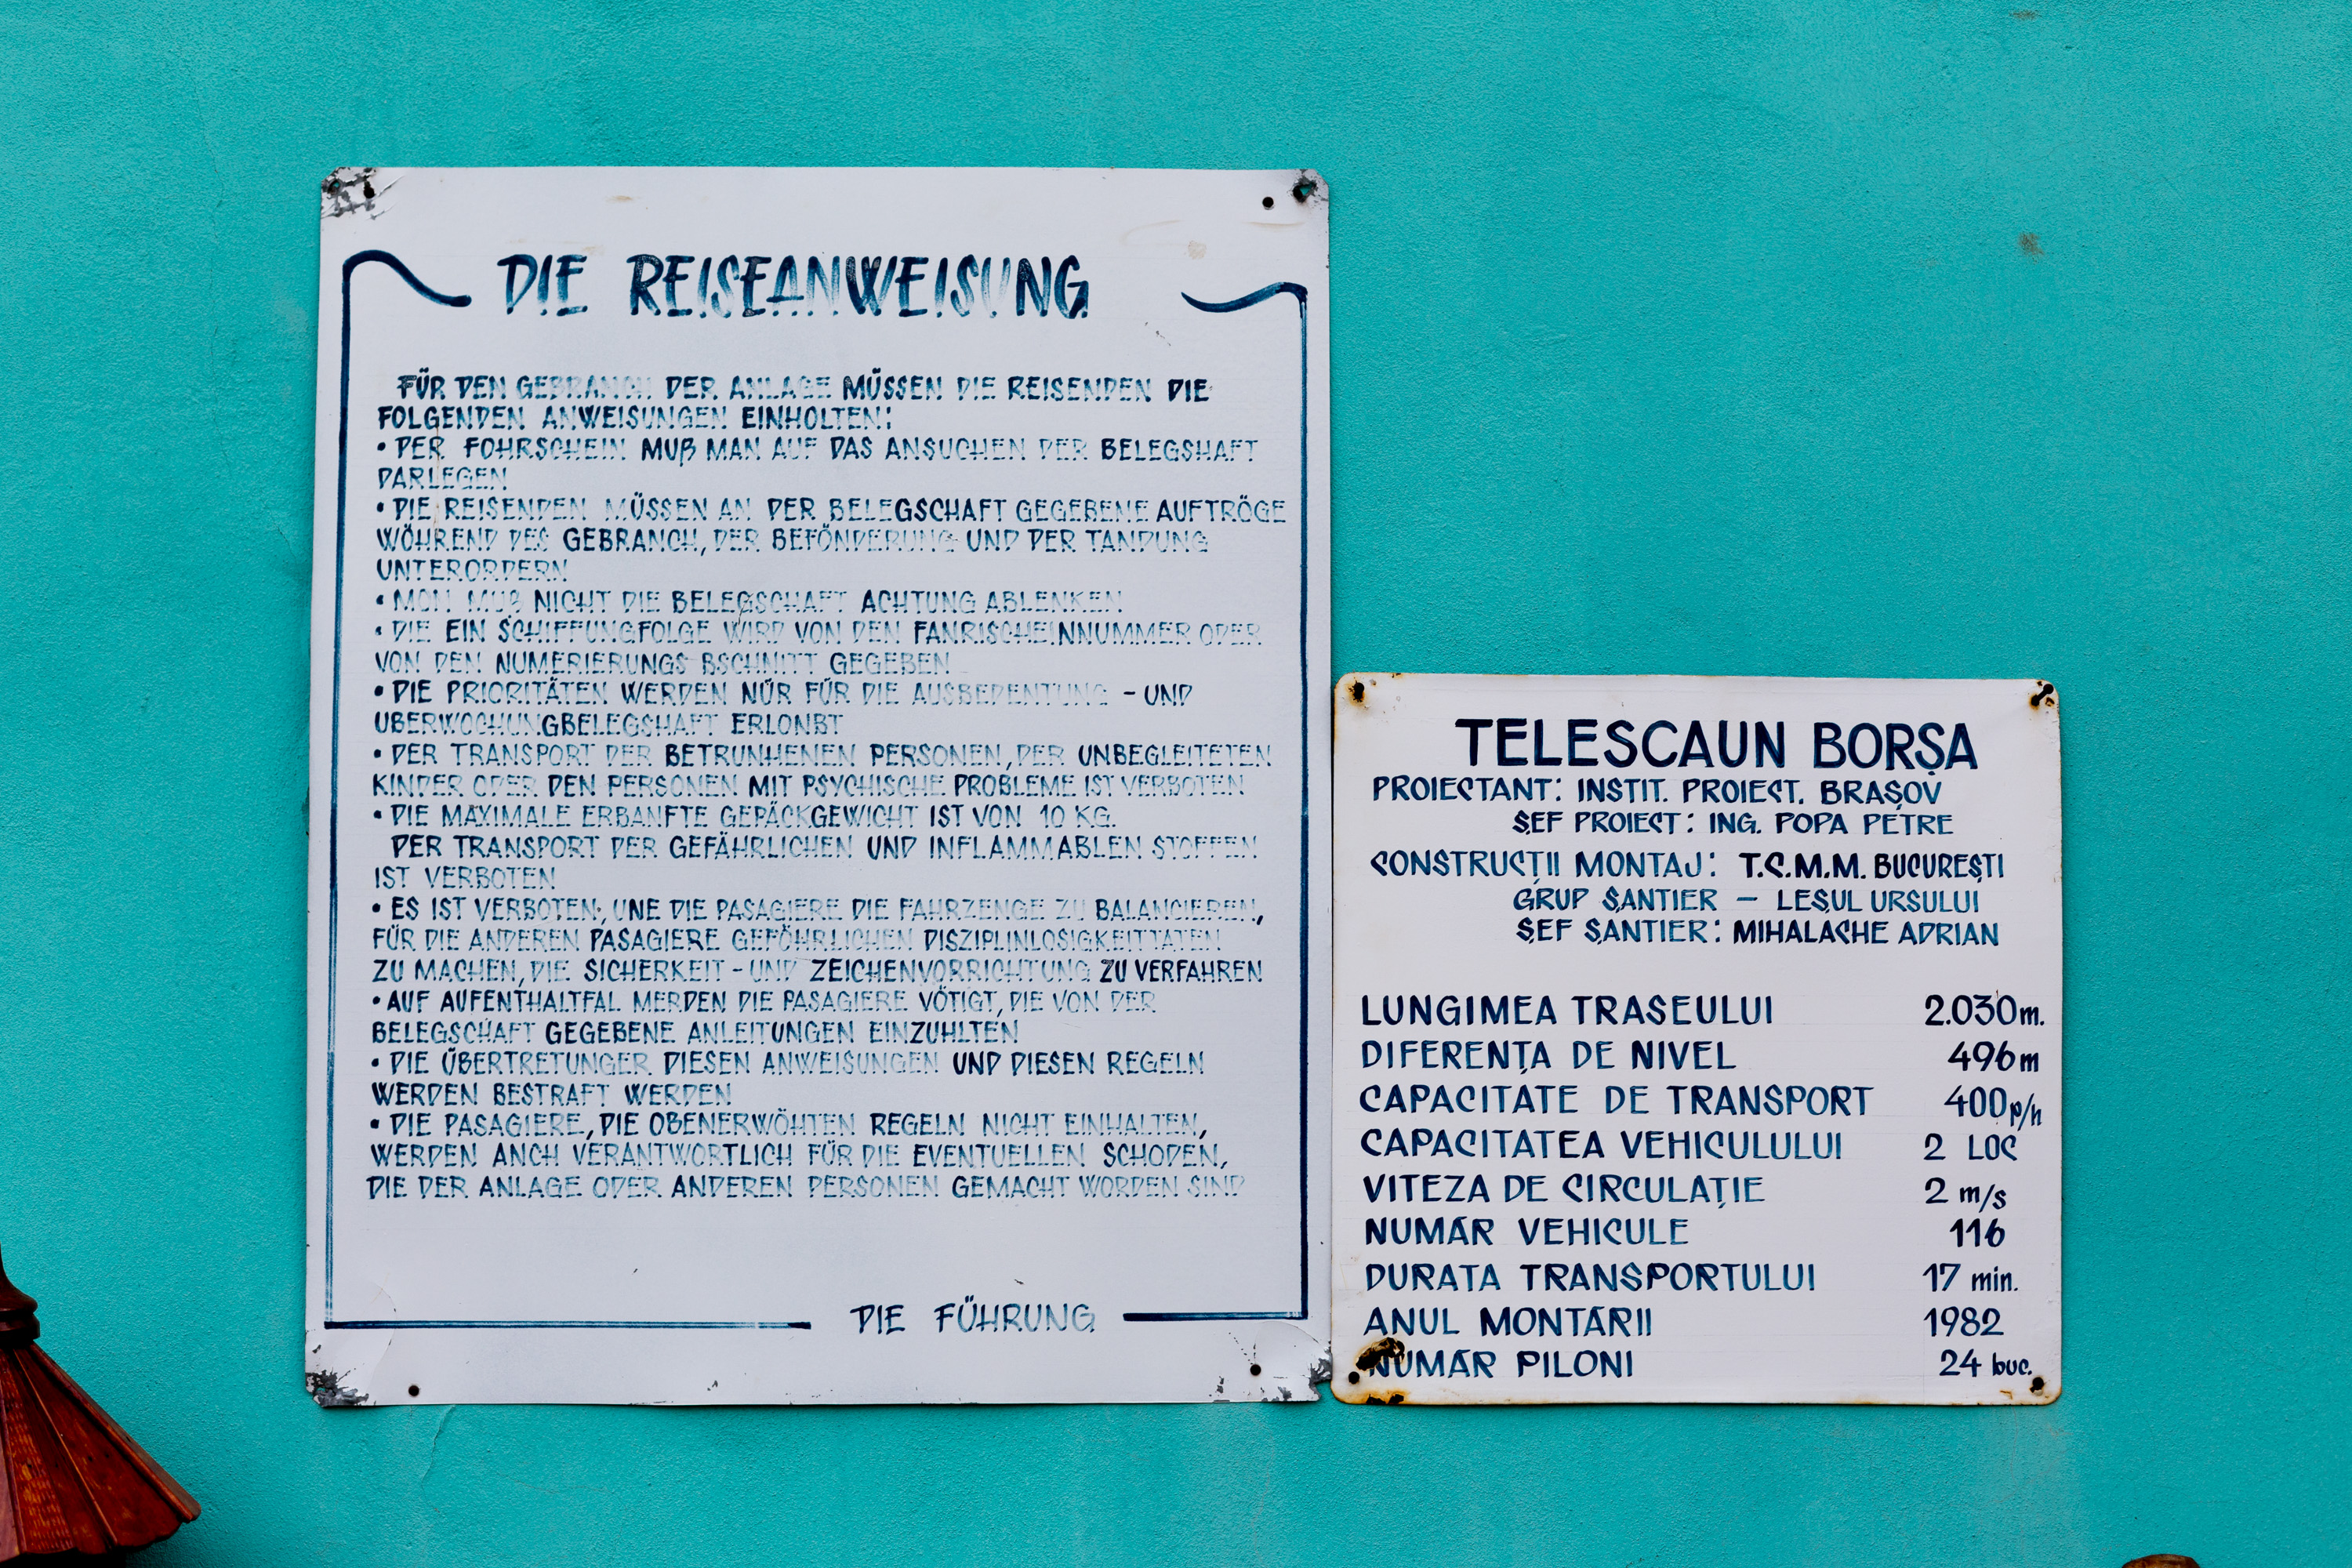 DIE REISEANWEISUNG
FÜR DEN GEBRANCH DER ANLAGE MÜSSEN DIE REISENDEN DIE
FOLGENDEN ANWEISUNGEN EINHOLTEN:
• DER FOHRSCHEIN MUß MAN AUF DAS ANSUCHEN DER BELEGSHAFT
DARLEGEN
• DIE REISENDEN MÜSSEN AN DER BELEGSCHAFT GEGEBENE AUFTRÖGE
WÖHREND DES GEBRANCH, DER BEFÖNDERUNG UND DER TANDUNG
UNTERORDERN
• MON MUß NICHT DIE BELEGSCHAFT ACHTUNG ABLENKEN
• DIE EIN SCHIFFUNGFOLGE WIRD VON DEN FANRISCHEINNUMMER ODER
VON DEN NUMERIERUNGS BSCHNITT GEGEBEN
• DIE PRIORITÄTEN WERDEN NÜR FÜR DIE AUSBEDENTUNG - UND
UBERWOCHUNGBELEGSHAFT ERLONBT
• DER TRANSPORT DER BETRUNHENEN PERSONEN, DER UNBEGLEITETEN
KINDER ODER DEN PERSONEN MIT PSYCHISCHE PROBLEME IST VERBOTEN
• DIE MAXIMALE ERBANFTE GEPÄCKGEWICHT IST VON 10 KG.
DER TRANSPORT DER GEFÄHRLICHEN UND INFLAMMABLEN STOFFEN
IST VERBOTEN
• ES IST VERBOTEN:, UNE DIE PASAGIERE DIE FAHRZENGE ZU BALANCIEREN,
FÜR DIE ANDEREN PASAGIERE GEFÖHRLICHEN DISZIPLINLOSIGKEITTATEN
ZU MACHEN, DIE SICHERKEIT - UND ZEICHENVORRICHTUNG ZU VERFAHREN
• AUF AUFENTHALTFAL MERDEN DIE PASAGIERE VÖTIGT, DIE VON DER
BELEGSCHAFT GEGEBENE ANLEITUNGEN EINZUHLTEN
• DIE ÜBERTRETUNGER DIESEN ANWEISUNGEN UND DIESEN REGELN
WERDEN BESTRAFT WERDEN
• DIE PASAGIERE, DIE OBENERWÖHTEN REGELN NICHT EINHALTEN,
WERDEN ANCH VERANTWORTLICH FÜR DIE EVENTUELLEN SCHODEN,
DIE DER ANLAGE ODER ANDEREN PERSONEN GEMACHT WORDEN SIND
DIE FÜHRUNG
TELESCAUN BORȘA
PROIECTANT: INSTIT. PROIECT. BRAȘOV
ȘEF PROIECT: ING. POPA PETRE
CONSTRUCȚII MONTAJ: T.C.M.M. BUCUREȘTI
GRUP ȘANTIER - LEȘUL URSULUI
ȘEF ȘANTIER: MIHALACHE ADRIAN
LUNGIMEA TRASEULUI 2.030m.
DIFERENȚA DE NIVEL 496m
CAPACITATE DE TRANSPORT 400p/h
CAPACITATEA VEHICULULUI 2 LOC
VITEZA DE CIRCULAȚIE 2 m/s
NUMĂR VEHICULE 116
DURATA TRANSPORTULUI 17 min.
ANUL MONTĂRII 1982
NUMĂR PILONI 24 buc.